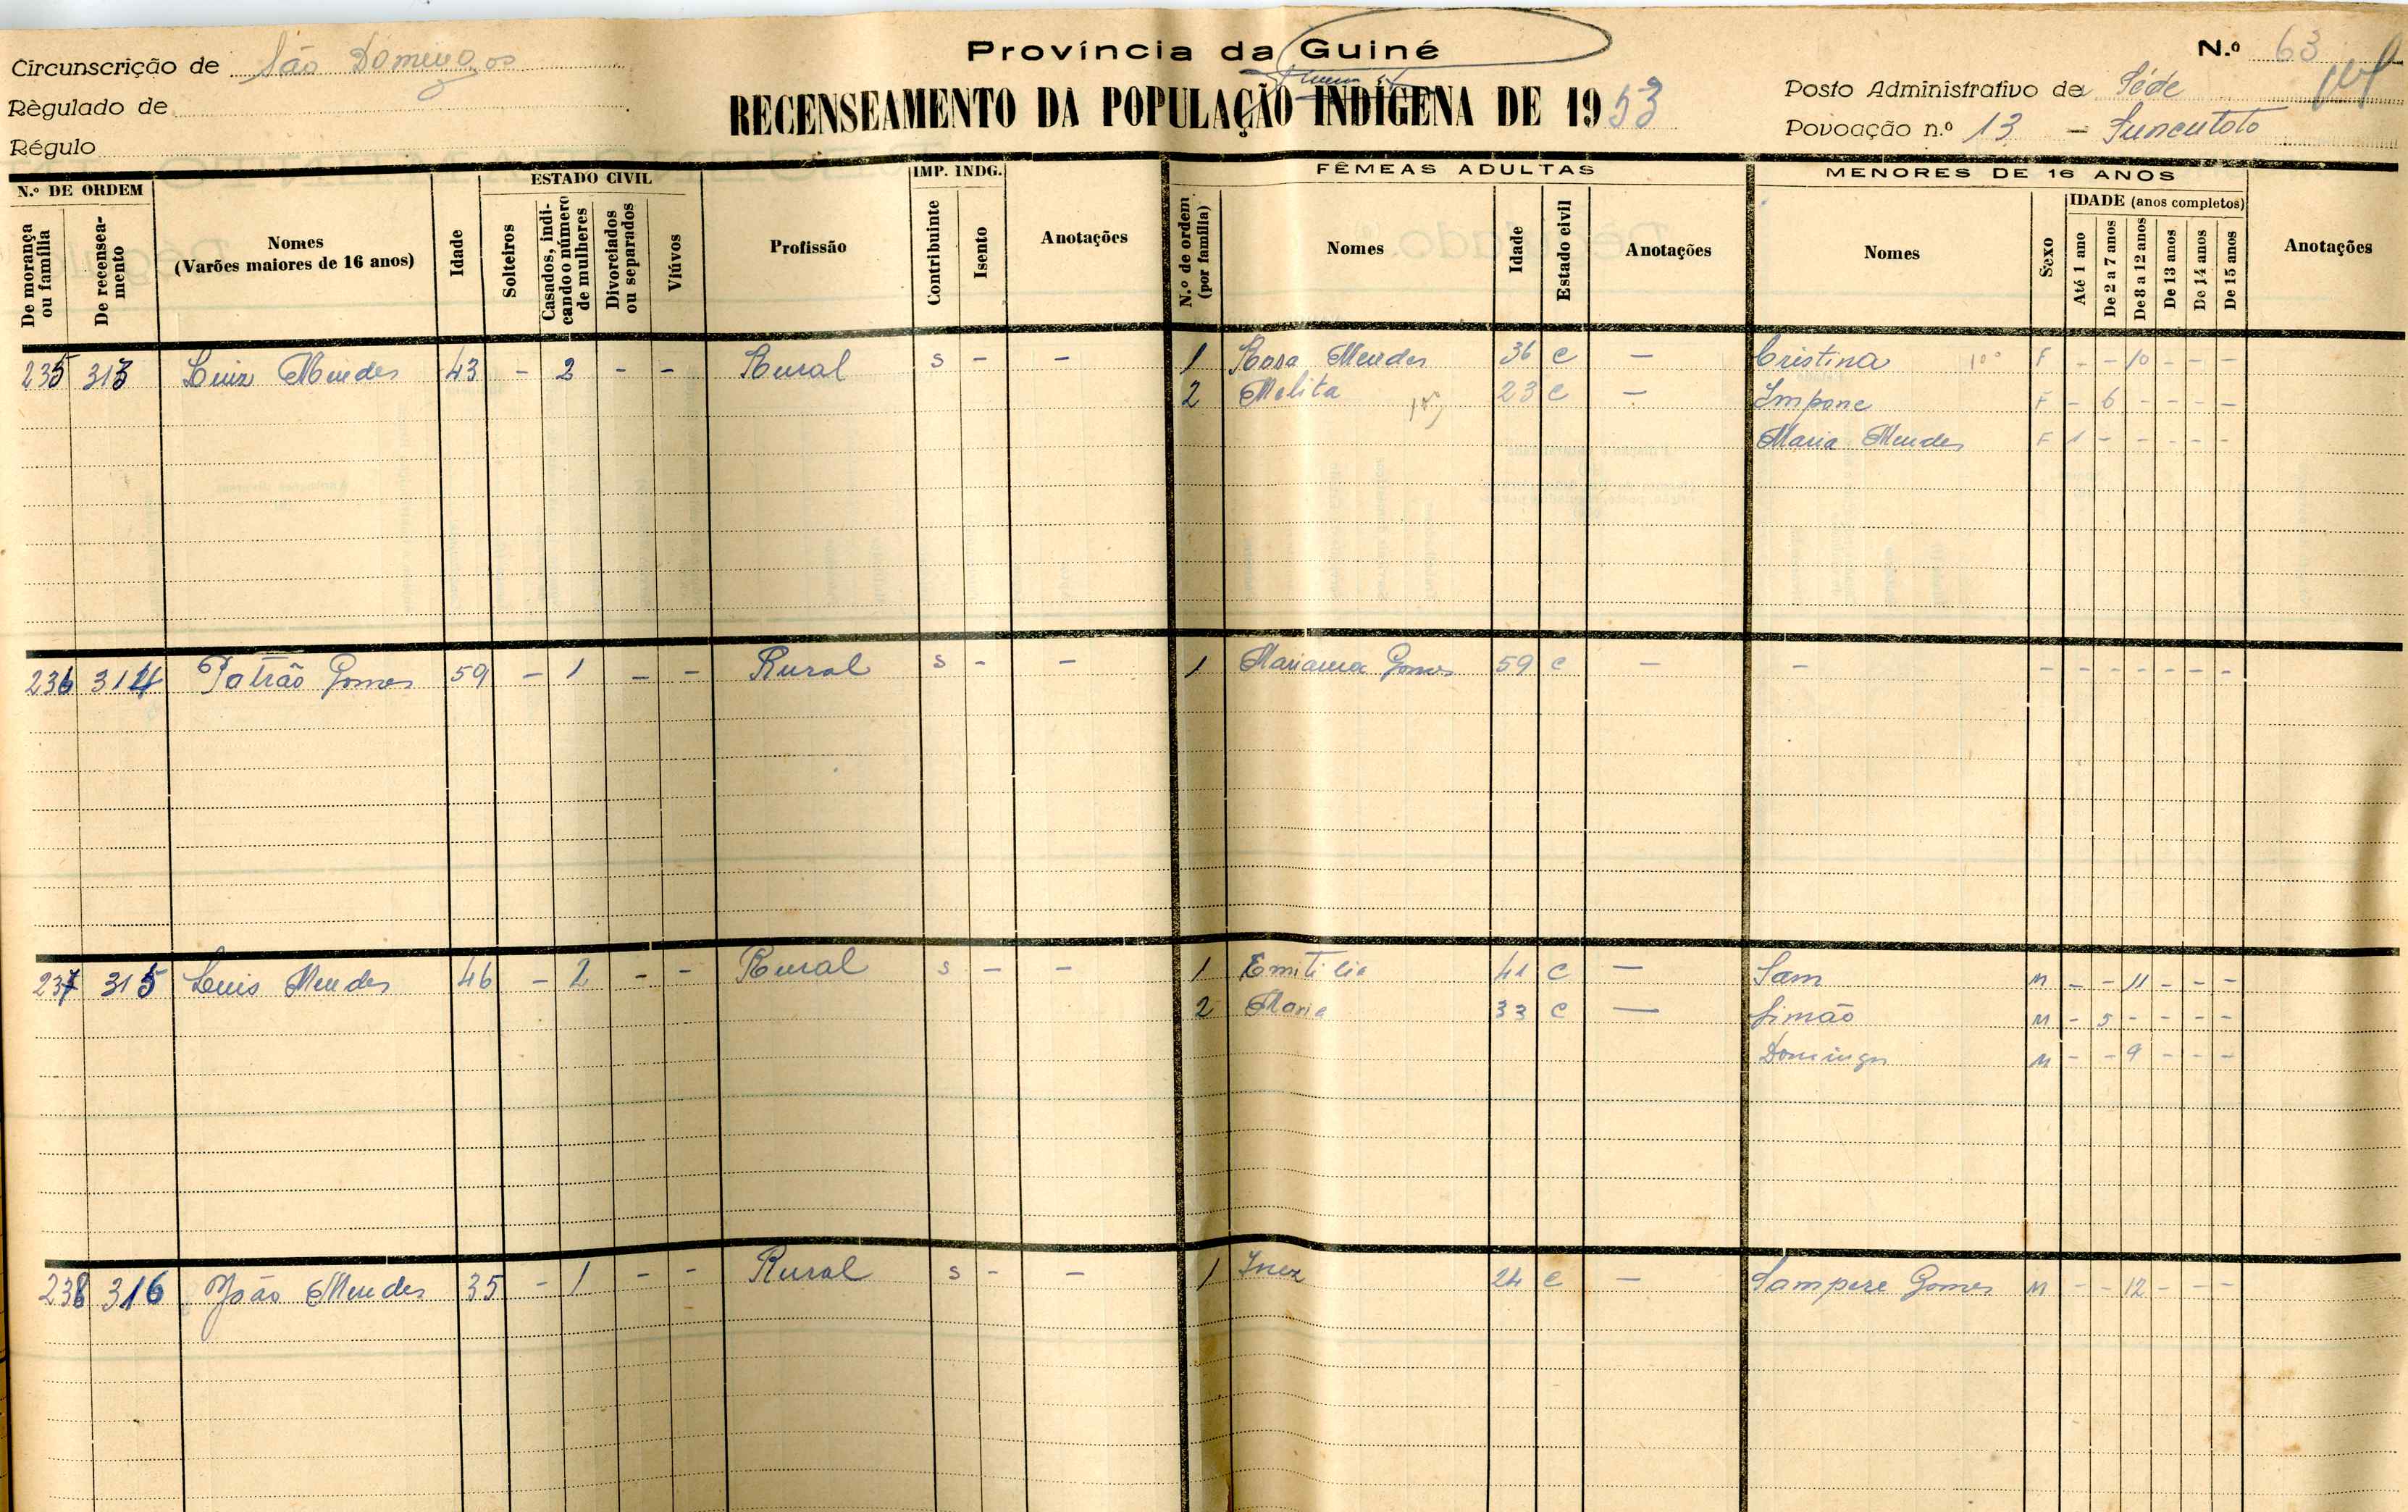 Província da Guiné
N.º 63
Circunscrição de São Domingos
RECENSEAMENTO DA POPULAÇÃO INDÍGENA DE 1953
Posto Administrativo da Séde
Règulado de
Povoação n.º 13 -
Régulo
N.º DE ORDEM
ESTADO CIVIL
IMP. INDG.
FÊMEAS ADULTAS
MENORES DE 16 ANOS
De morança ou família
De recenseamento
Nomes
(Varões maiores de 16 anos)
Idade
Solteiros
Casados, indicando o número de mulheres
Divorciados ou separados
Viúvos
Profissão
Contribuinte
Isento
Anotações
N.º de ordem (por família)
Nomes
Idade
Estado civil
Anotações
Nomes
Sexo
IDADE (anos completos)
Até 1 ano
De 2 a 7 anos
De 8 a 12 anos
De 13 anos
De 14 anos
De 15 anos
Anotações
235 313 Luiz Mendes 43 - 2 - - Rural s - - 1 Rosa Mendes 36 c - Cristina F - - 10 - - -
2 Melita 23 c - Impone F - 6 - - - -
Maria Mendes F 1 - - - - -
236 314 Patrão Gomes 59 - 1 - - Rural s - - 1 Mariama Gomes 59 c - - - - - - - - -
237 315 Luis Mendes 46 - 2 - - Rural s - - 1 Emitilia 41 c - Sam M - - 11 - - -
2 Maria 33 c - Simão M - 5 - - - -
Domingos M - - 9 - - -
238 316 João Mendes 35 - 1 - - Rural s - - 1 Inez 24 c - Sampere Gomes M - - 12 - - -